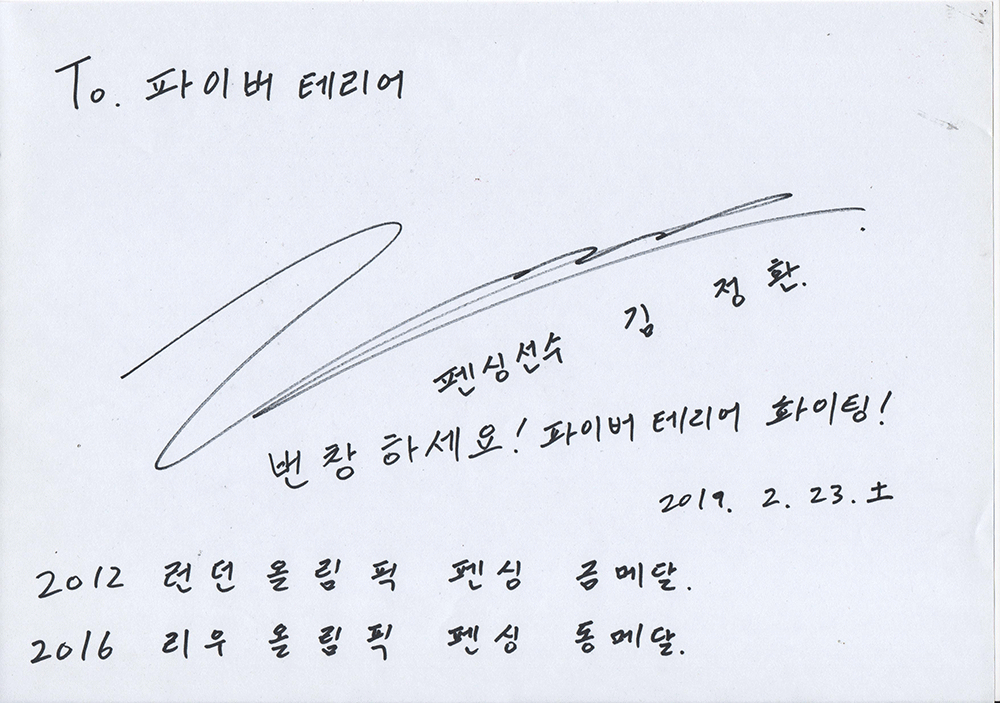 To. 파이버 테리어
펜싱선수 김 정 환.
번창 하세요! 파이버 테리어 화이팅!
2019. 2. 23. 土
2012 런던 올림픽 펜싱 금메달.
2016 리우 올림픽 펜싱 동메달.